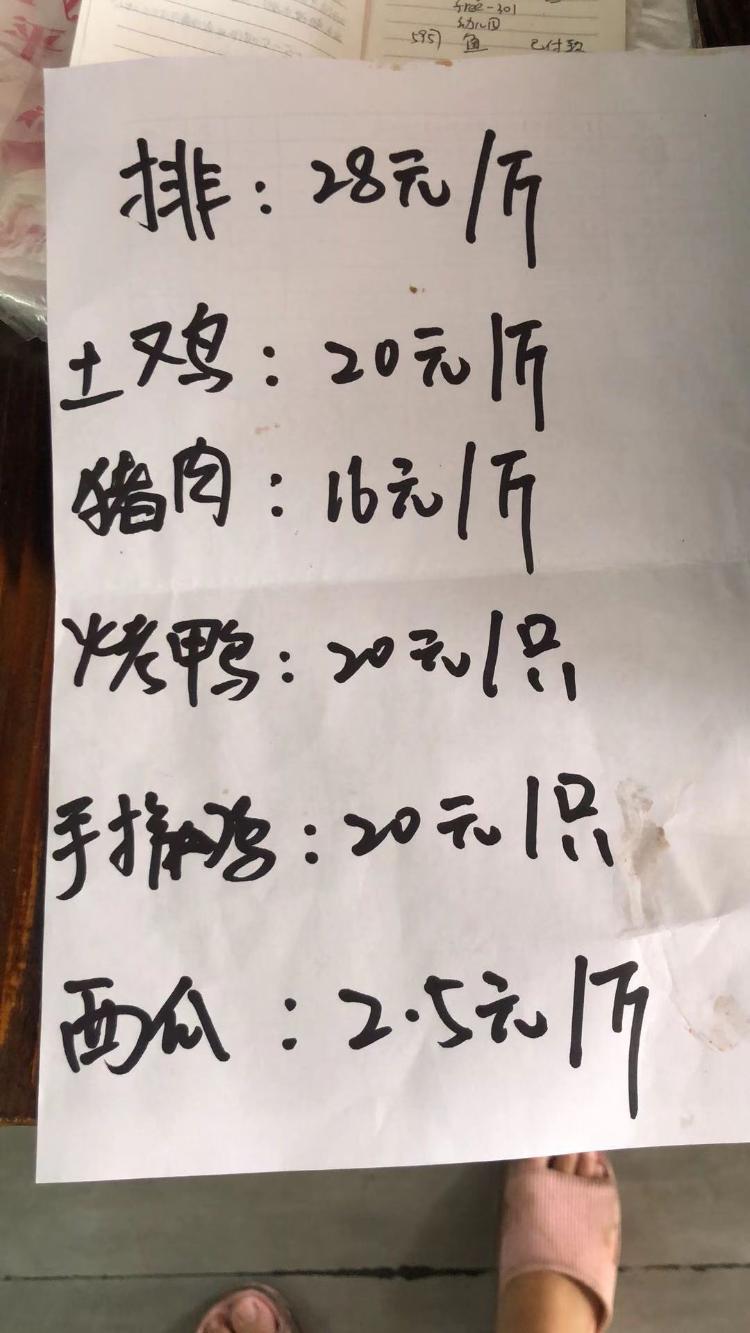 幼儿园
595) 鱼 已付款
排：28元/斤
土鸡：20元/斤
猪肉：16元/斤
烤鸭：20元/只
手撕鸡：20元/只
西瓜：2.5元/斤